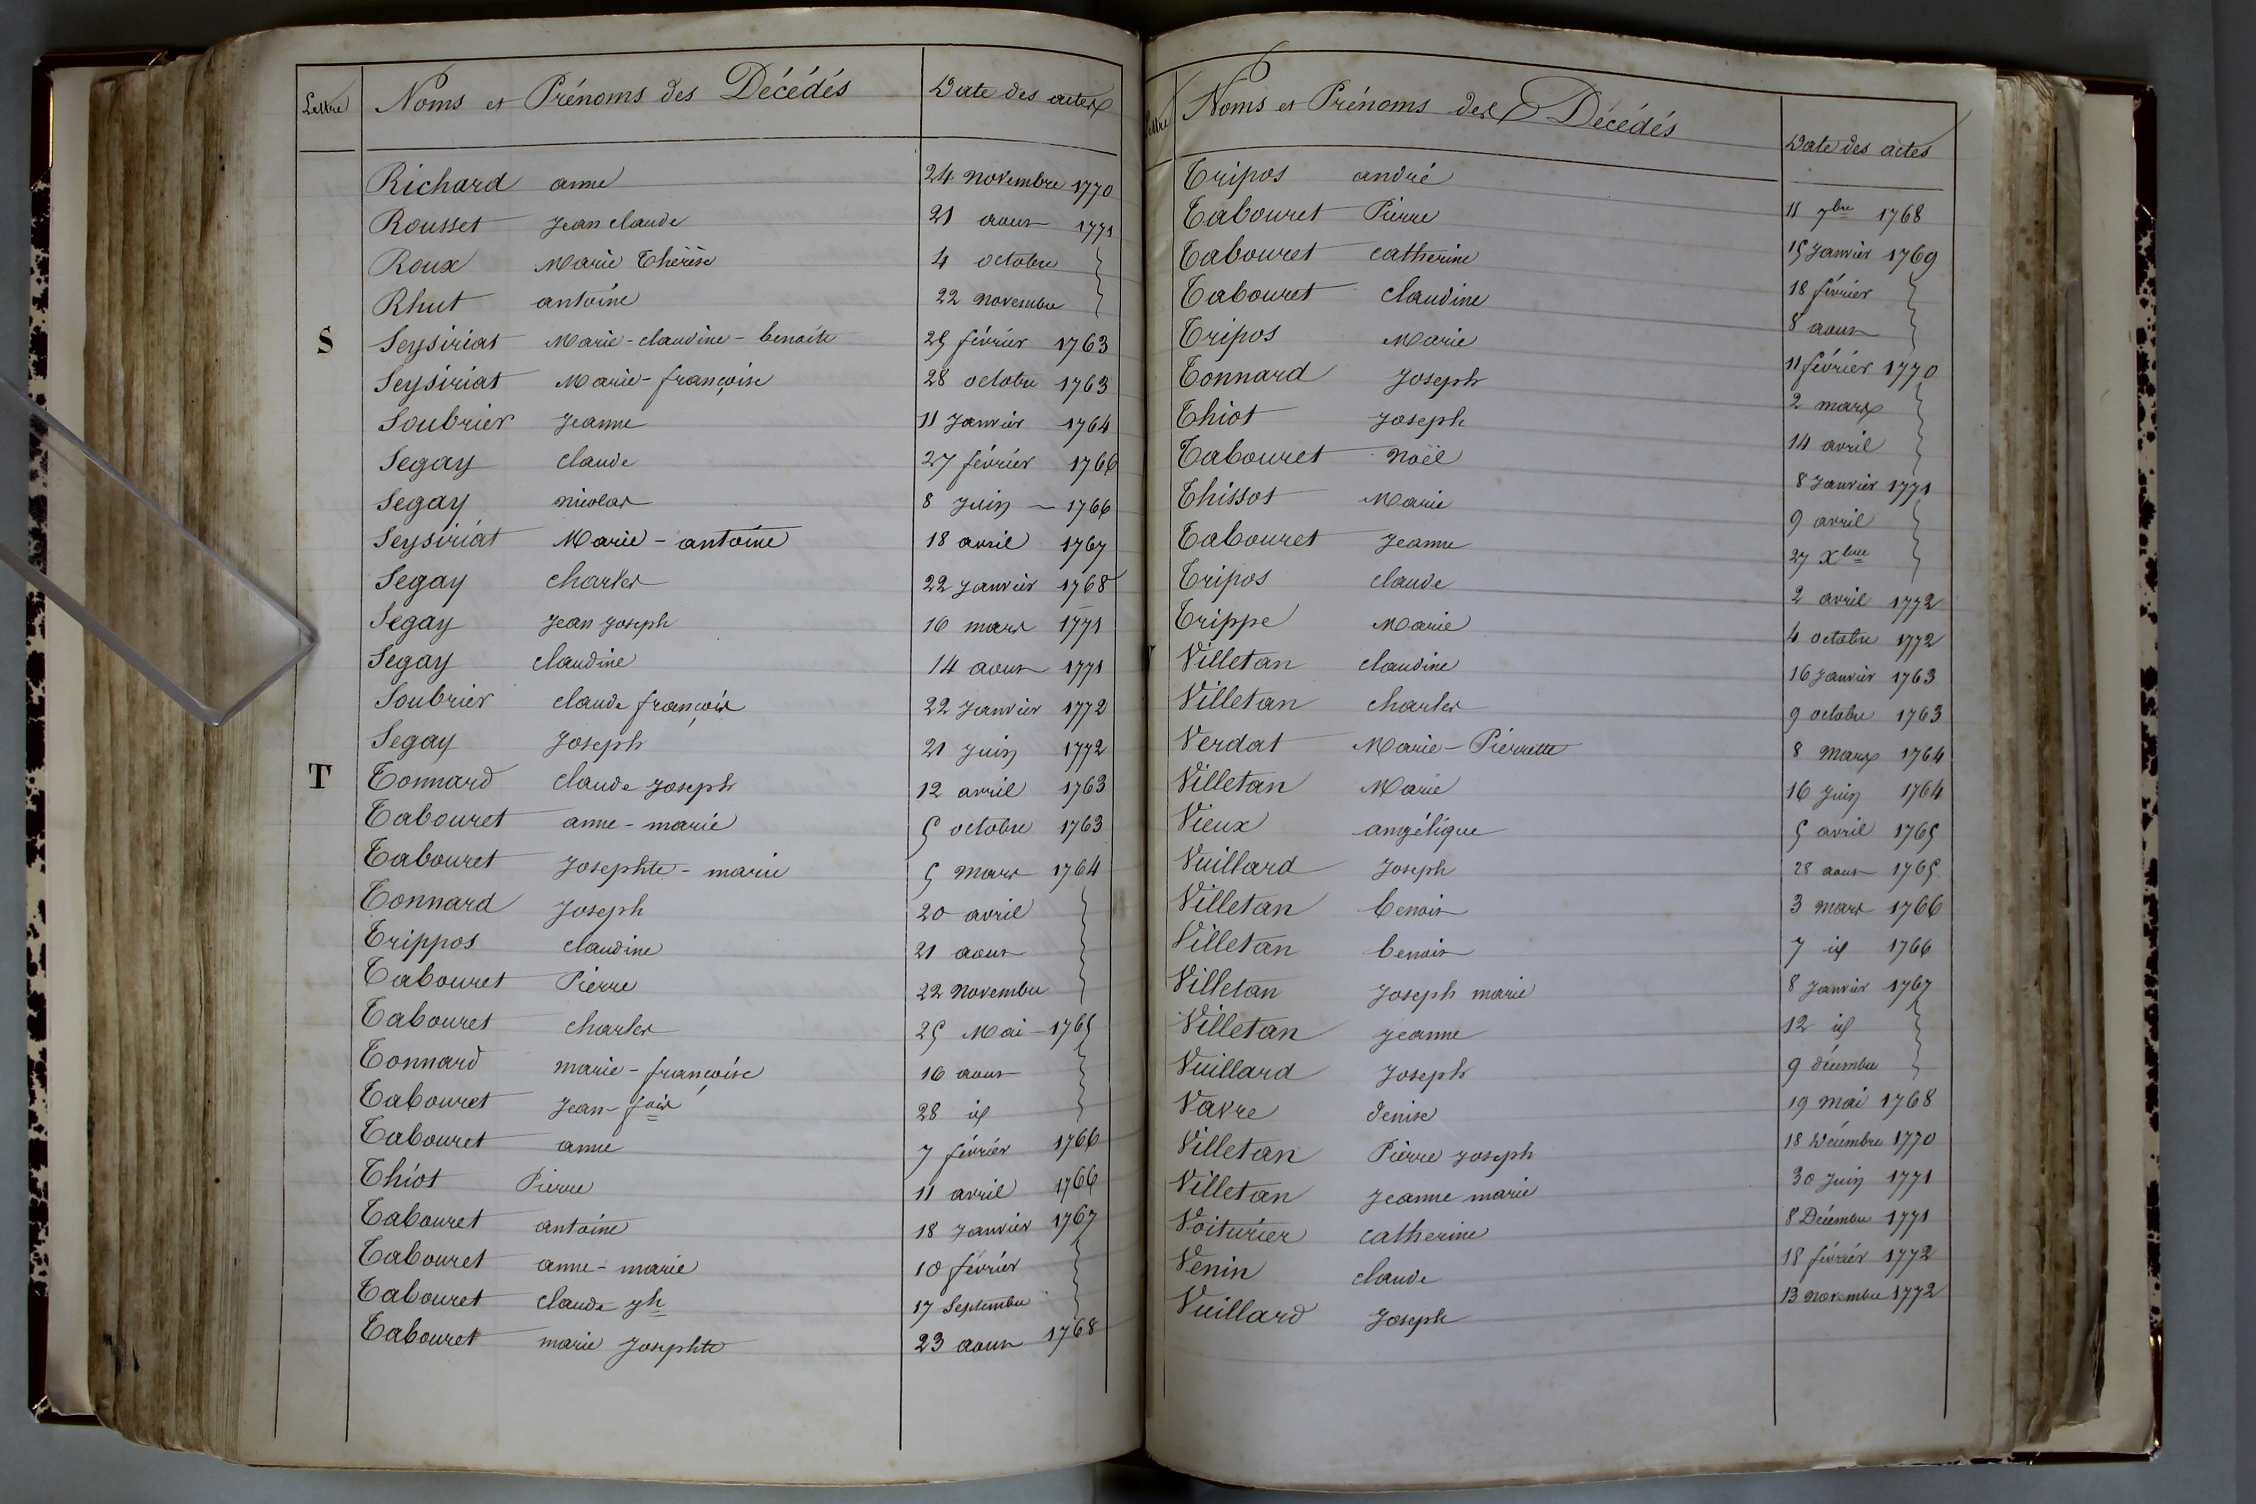 Lettre Noms et Prénoms des Décédés Date des actes
Richard anne 24 novembre 1770
Rousset Jean claude 21 aout 1771
Roux Marie Thérèse 4 octobre }
Rhut antoine 22 novembre }
S Seysiriat Marie-claudine-benoite 25 février 1763
Seysiriat Marie-françoise 28 octobre 1763
Soubrier Jeanne 11 Janvier 1764
Segay claude 27 février 1766
Segay nicolas 8 Juin — 1766
Seysiriat Marie-antoine 18 avril 1767
Segay charles 22 Janvier 1768
Segay Jean Joseph 16 mars 1771
Segay claudine 14 aout 1771
Soubrier claude françois 22 Janvier 1772
Segay Joseph 21 Juin 1772
T Tonnard claude Joseph 12 avril 1763
Tabouret anne-marie 5 octobre 1763
Tabouret Josephte-marie 5 Mars 1764
Tonnard Joseph 20 avril }
Trippos claudine 21 aout }
Tabouret Pierre 22 Novembre }
Tabouret charles 25 Mai 1765
Tonnard marie-françoise 16 aout }
Tabouret Jean-fois 28 id }
Tabouret anne 7 février 1766
Thiot Pierre 11 avril 1766
Tabouret antoine 18 Janvier 1767
Tabouret anne-marie 10 février }
Tabouret claude jh 17 Septembre }
Tabouret marie Josephte 23 aout 1768
Lettre Noms et Prénoms des Décédés Date des actes
Tripos andré 11 7bre 1768
Tabouret Pierre 15 Janvier 1769
Tabouret catherine 18 février }
Tabouret claudine 8 aout }
Tripos Marie 11 février 1770
Tonnard Joseph 2 mars }
Thiot Joseph 14 avril }
Tabouret Noël 8 Janvier 1771
Thissot Marie 9 avril }
Tabouret Jeanne 27 Xbre }
Tripos claude 2 avril 1772
Trippe Marie 4 octobre 1772
V Villetan claudine 16 Janvier 1763
Villetan charles 9 octobre 1763
Verdat Marie-Pierrette 8 Mars 1764
Villetan Marie 16 Juin 1764
Vieux angélique 5 avril 1765
Vuillard Joseph 28 aout 1765
Villetan benoit 3 Mars 1766
Villetan benoit 7 id 1766
Villetan Joseph marie 8 Janvier 1767
Villetan Jeanne 12 id }
Vuillard Joseph 9 décembre }
Vavre denise 19 mai 1768
Villetan Pierre Joseph 18 Décembre 1770
Villetan Jeanne marie 30 Juin 1771
Voiturier catherine 8 Décembre 1771
Venin claude 18 février 1772
Vuillard Joseph 13 Novembre 1772